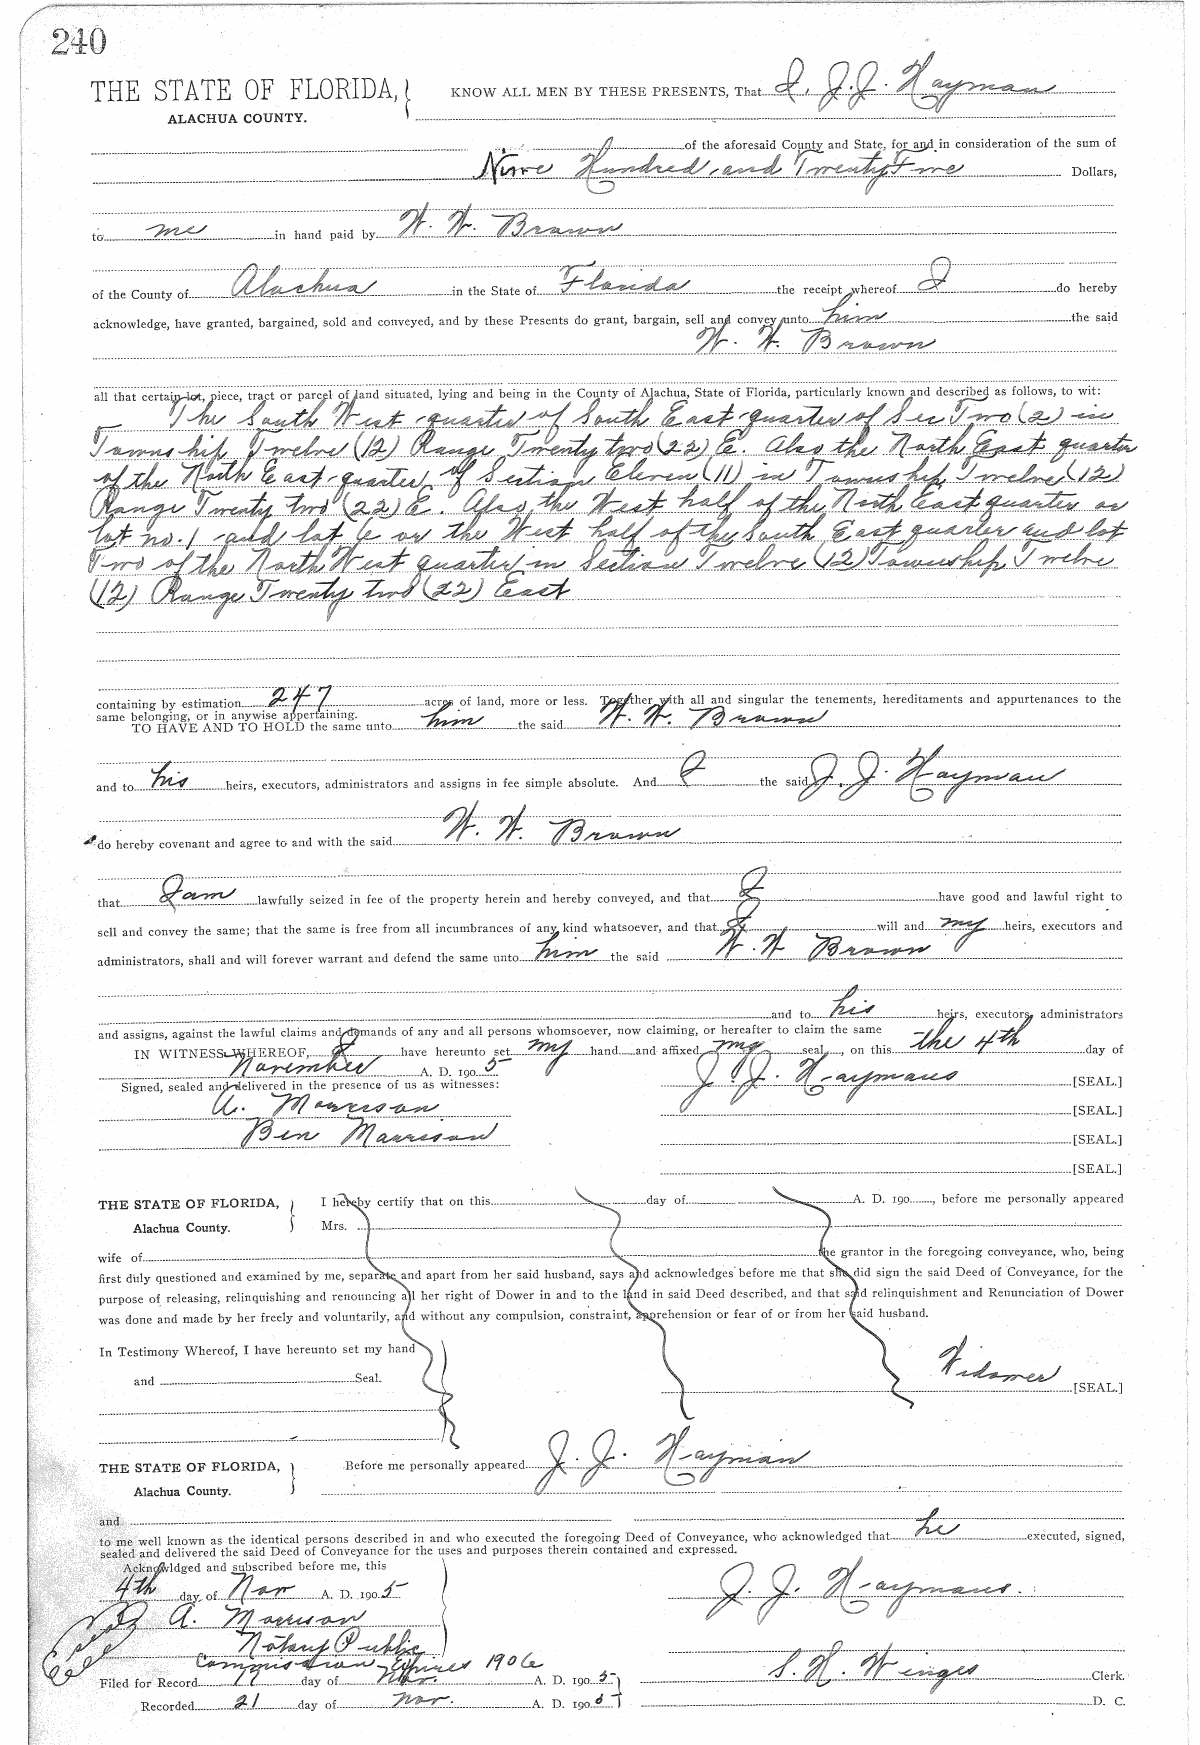 240
THE STATE OF FLORIDA,
ALACHUA COUNTY.
KNOW ALL MEN BY THESE PRESENTS, That I, J. J. Hayman
of the aforesaid County and State, for and in consideration of the sum of
Nine Hundred and Twenty Five Dollars,
to me in hand paid by W. W. Brown
of the County of Alachua in the State of Florida the receipt whereof I do hereby
acknowledge, have granted, bargained, sold and conveyed, and by these Presents do grant, bargain, sell and convey unto him the said
W. W. Brown
all that certain lot, piece, tract or parcel of land situated, lying and being in the County of Alachua, State of Florida, particularly known and described as follows, to wit:
The South West quarter of South East quarter of Sec Two (2) in
Township Twelve (12) Range Twenty two (22) E. Also the North East quarter
of the North East quarter of Section Eleven (11) in Township Twelve (12)
Range Twenty two (22) E. Also the West half of the North East quarter or
lot no. 1 and lot 6 or the West half of the South East quarter and lot
Two of the North West quarter in Section Twelve (12) Township Twelve
(12) Range Twenty two (22) East
containing by estimation 247 acres of land, more or less. Together with all and singular the tenements, hereditaments and appurtenances to the
same belonging, or in anywise appertaining.
TO HAVE AND TO HOLD the same unto him the said W. W. Brown
and to his heirs, executors, administrators and assigns in fee simple absolute. And I the said J. J. Hayman
do hereby covenant and agree to and with the said W. W. Brown
that I am lawfully seized in fee of the property herein and hereby conveyed, and that I have good and lawful right to
sell and convey the same; that the same is free from all incumbrances of any kind whatsoever, and that I will and my heirs, executors and
administrators, shall and will forever warrant and defend the same unto him the said W. W Brown
and to his heirs, executors, administrators
and assigns, against the lawful claims and demands of any and all persons whomsoever, now claiming, or hereafter to claim the same
IN WITNESS WHEREOF, I have hereunto set my hand and affixed my seal, on this the 4th day of
November A. D. 1905
Signed, sealed and delivered in the presence of us as witnesses:
J. J. Haymans [SEAL.]
A. Morrison [SEAL.]
Ben Morrison [SEAL.]
[SEAL.]
THE STATE OF FLORIDA,
Alachua County.
I hereby certify that on this day of A. D. 190, before me personally appeared
Mrs.
wife of the grantor in the foregoing conveyance, who, being
first duly questioned and examined by me, separate and apart from her said husband, says and acknowledges before me that she did sign the said Deed of Conveyance, for the
purpose of releasing, relinquishing and renouncing all her right of Dower in and to the land in said Deed described, and that said relinquishment and Renunciation of Dower
was done and made by her freely and voluntarily, and without any compulsion, constraint, apprehension or fear of or from her said husband.
In Testimony Whereof, I have hereunto set my hand
and Seal.
Widower [SEAL.]
THE STATE OF FLORIDA,
Alachua County.
Before me personally appeared J. J. Hayman
and
to me well known as the identical persons described in and who executed the foregoing Deed of Conveyance, who acknowledged that he executed, signed,
sealed and delivered the said Deed of Conveyance for the uses and purposes therein contained and expressed.
Acknowldged and subscribed before me, this
4th day of Nov A. D. 1905
J. J. Haymans.
A. Morrison
Notary Public
Commission Expires 1906
Filed for Record 17 day of Nov. A. D. 1905
S. H. Wienges Clerk.
Recorded 21 day of Nov. A. D. 1905
D. C.